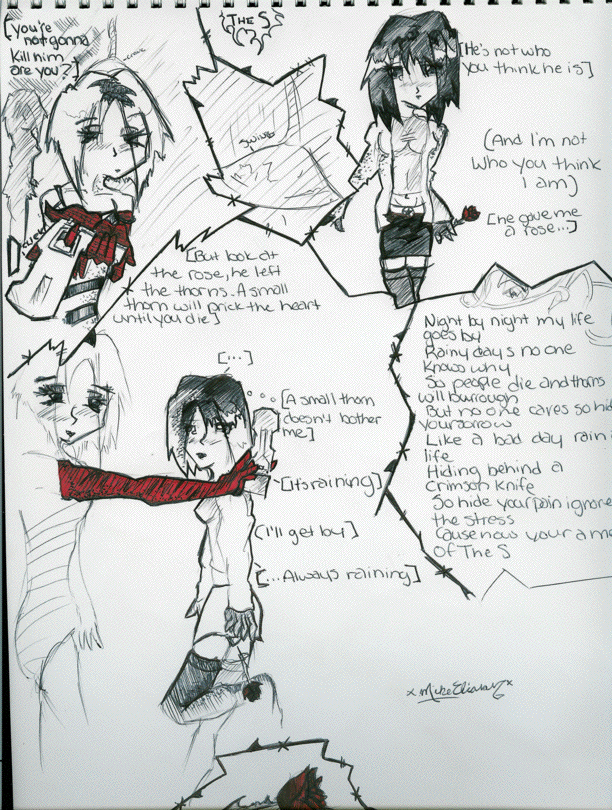 [you're
not gonna
kill him
are you?]
THE S
[He's not who
you think he is]
swing
(And I'm not
who you think
I am)
[he gave me
a rose...]
[But look at
the rose, he left
the thorns. A small
thorn will prick the heart
until you die]
Night by night my life
goes by
Rainy days no one
knows why
So people die and thorns
will burrough
But no one cares so hid
your sorrow
Like a bad day rain i
life
Hiding behind a
Crimson Knife
So hide your pain ignore
the stress
Cause now your a me
of The S
[...]
[A small thorn
doesn't bother
me]
[it's raining]
(I'll get by]
[...Always raining]